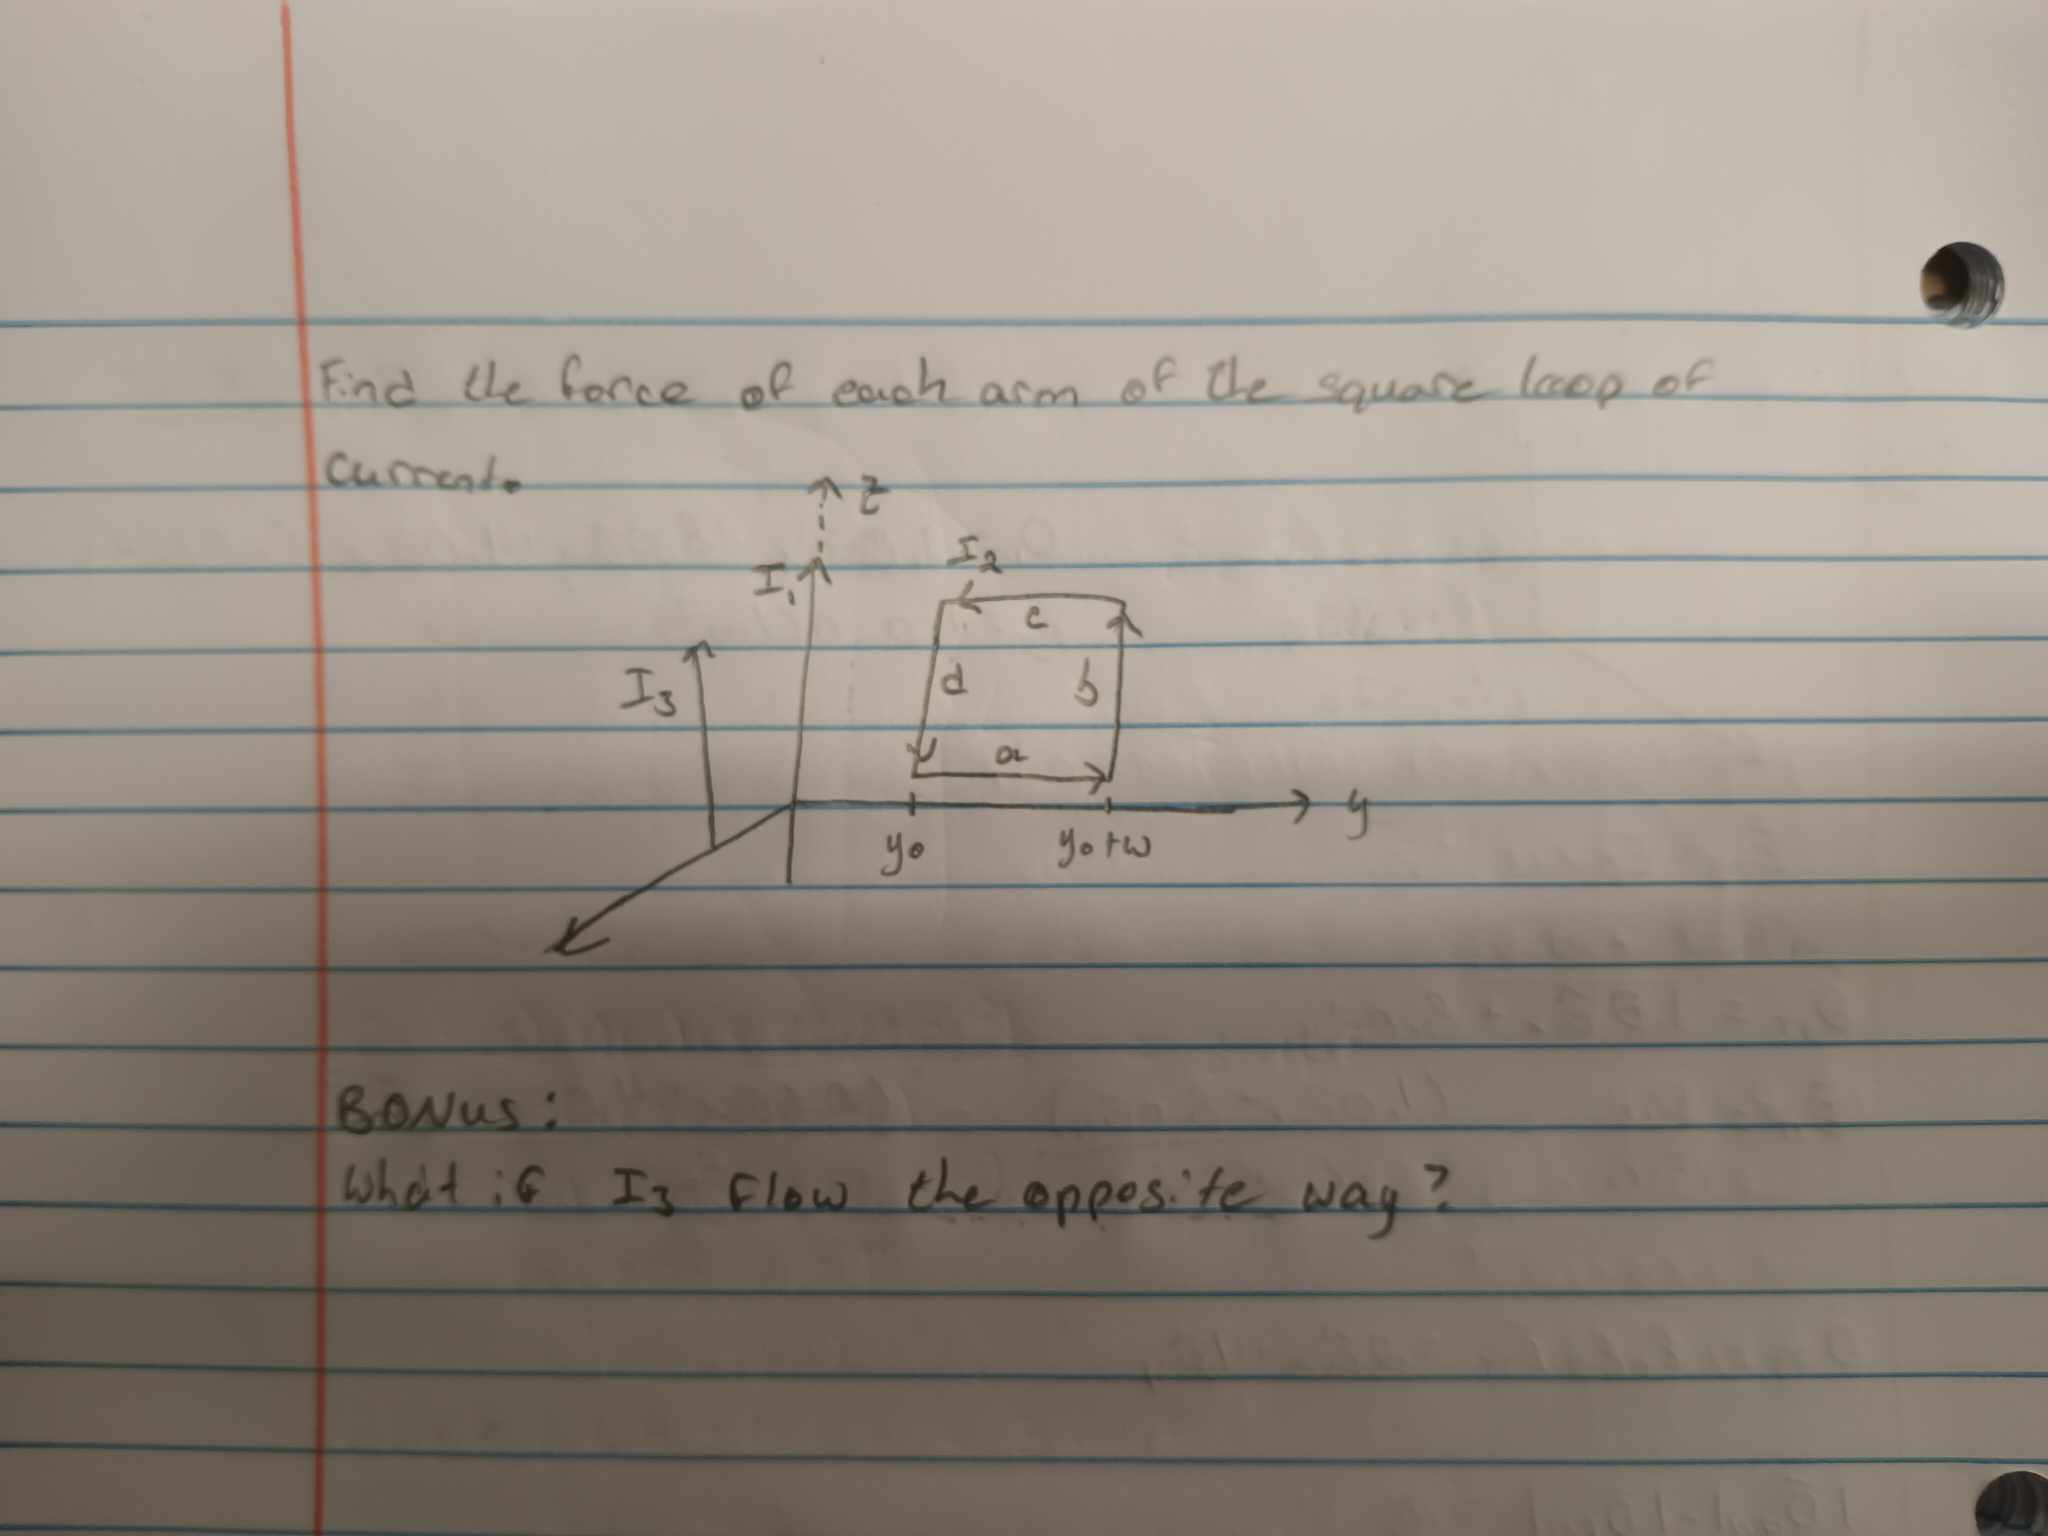 Find the force of each arm of the square loop of
current.
z
I₁
I₂
c
I₃
d
b
a
y
y₀
y₀+w
BONUS:
What if I₃ flow the opposite way?